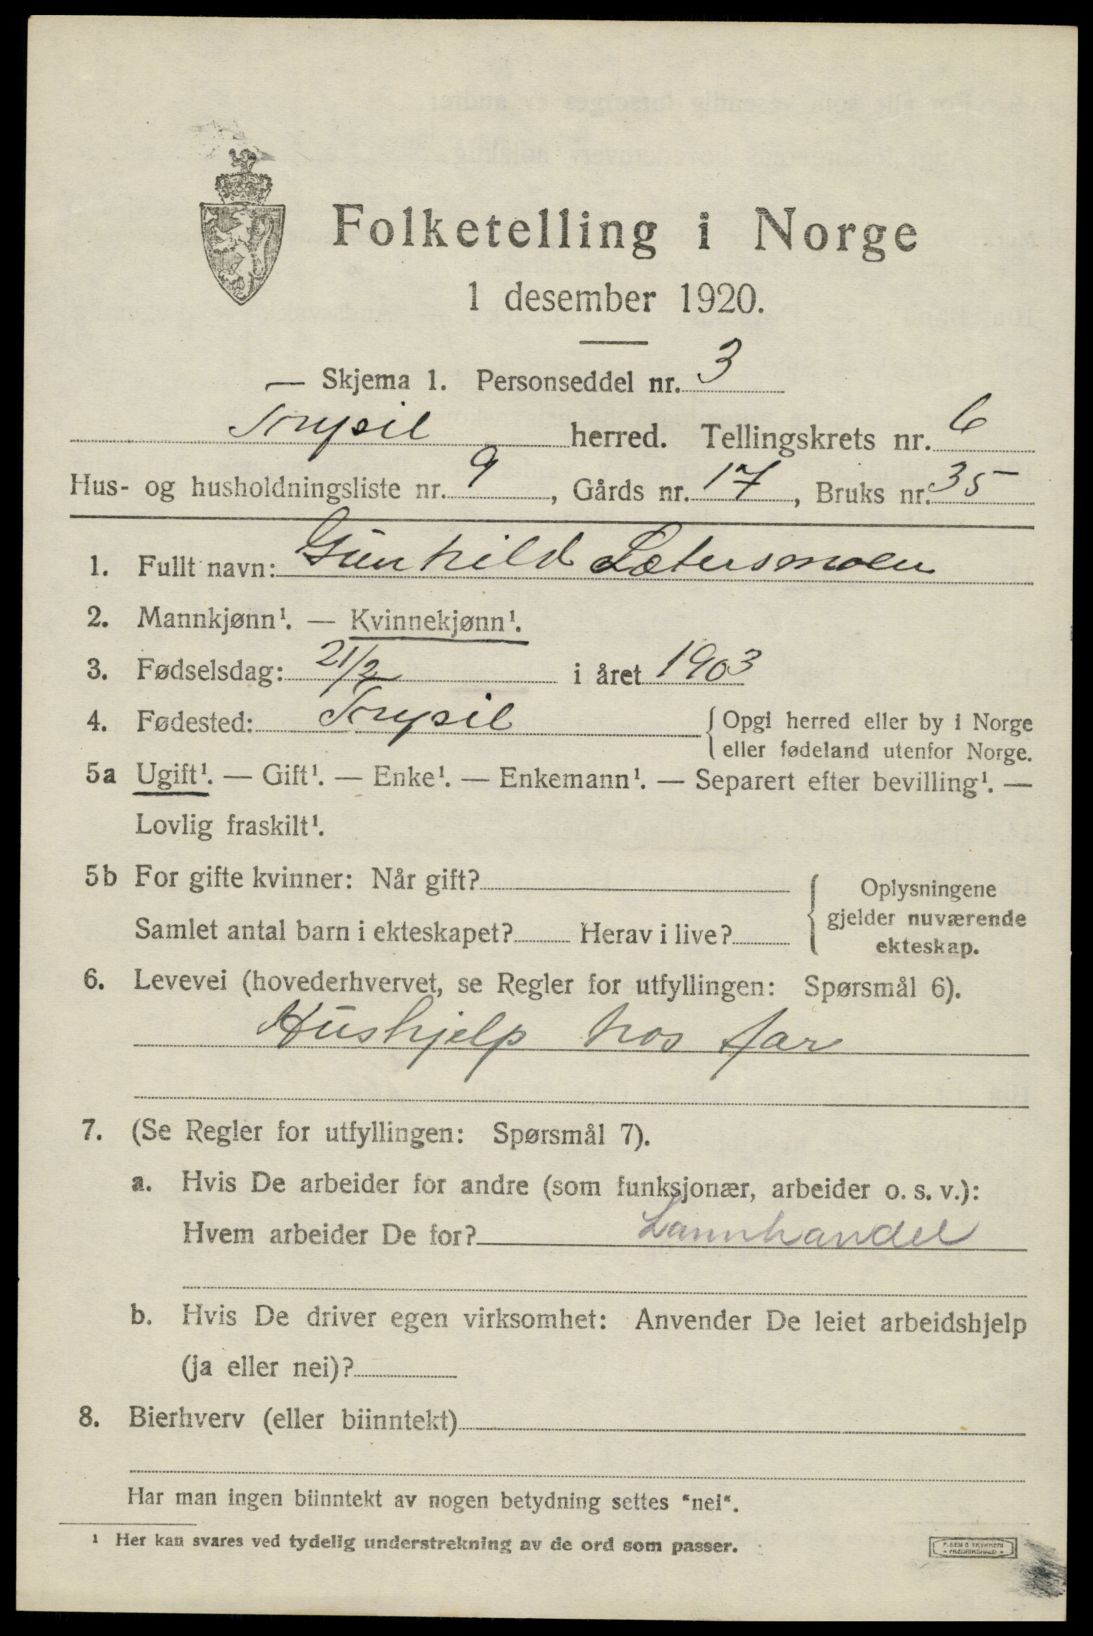 Folketelling i Norge
1 desember 1920.
— Skjema 1. Personseddel nr. 3
Trysil herred. Tellingskrets nr. 6
Hus- og husholdningsliste nr. 9, Gårds nr. 17, Bruks nr. 35
1. Fullt navn: Gunhild Sætersmoen
2. Mannkjønn¹. — Kvinnekjønn¹.
3. Fødselsdag: 21/2 i året 1903
4. Fødested: Trysil {Opgi herred eller by i Norge
eller fødeland utenfor Norge.
5a Ugift¹. — Gift¹. — Enke¹. — Enkemann¹. — Separert efter bevilling¹. —
Lovlig fraskilt¹.
5b For gifte kvinner: Når gift?
Samlet antal barn i ekteskapet? Herav i live?
Oplysningene
gjelder nuværende
ekteskap.
6. Levevei (hovederhvervet, se Regler for utfyllingen: Spørsmål 6).
Hushjelp hos far
7. (Se Regler for utfyllingen: Spørsmål 7).
a. Hvis De arbeider for andre (som funksjonær, arbeider o. s. v.):
Hvem arbeider De for? Lannhandel
b. Hvis De driver egen virksomhet: Anvender De leiet arbeidshjelp
(ja eller nei)?
8. Bierhverv (eller biinntekt)
Har man ingen biinntekt av nogen betydning settes "nei".
¹ Her kan svares ved tydelig understrekning av de ord som passer.